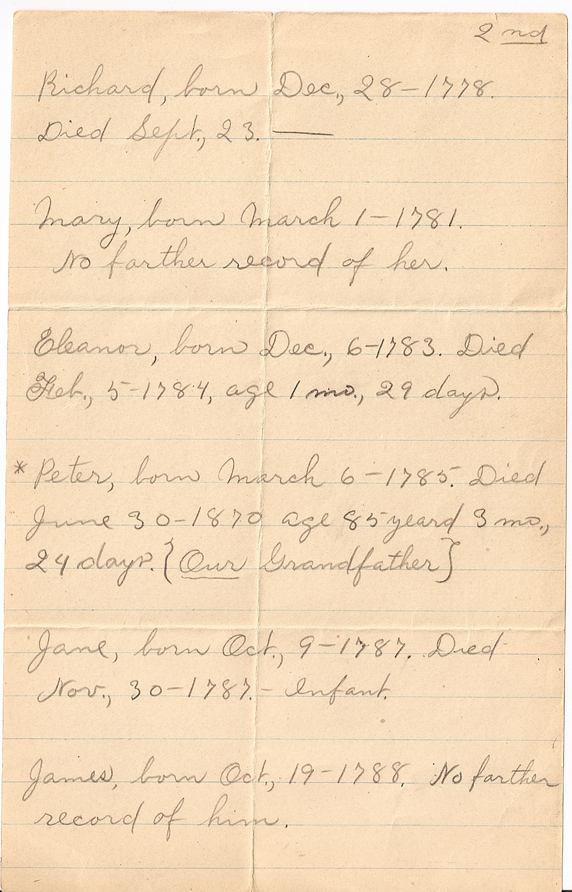 2 nd
Richard, born Dec., 28-1778.
Died Sept., 23. —
Mary, born March 1-1781.
No farther record of her.
Eleanor, born Dec., 6-1783. Died
Feb., 5-1784, age 1 mo., 29 days.
* Peter, born March 6-1785. Died
June 30-1870 age 85 yeard 3 mo.,
24 days. {Our Grandfather}
Jane, born Oct., 9-1787. Died
Nov., 30-1787.- Infant.
James, born Oct., 19-1788. No farther
record of him.